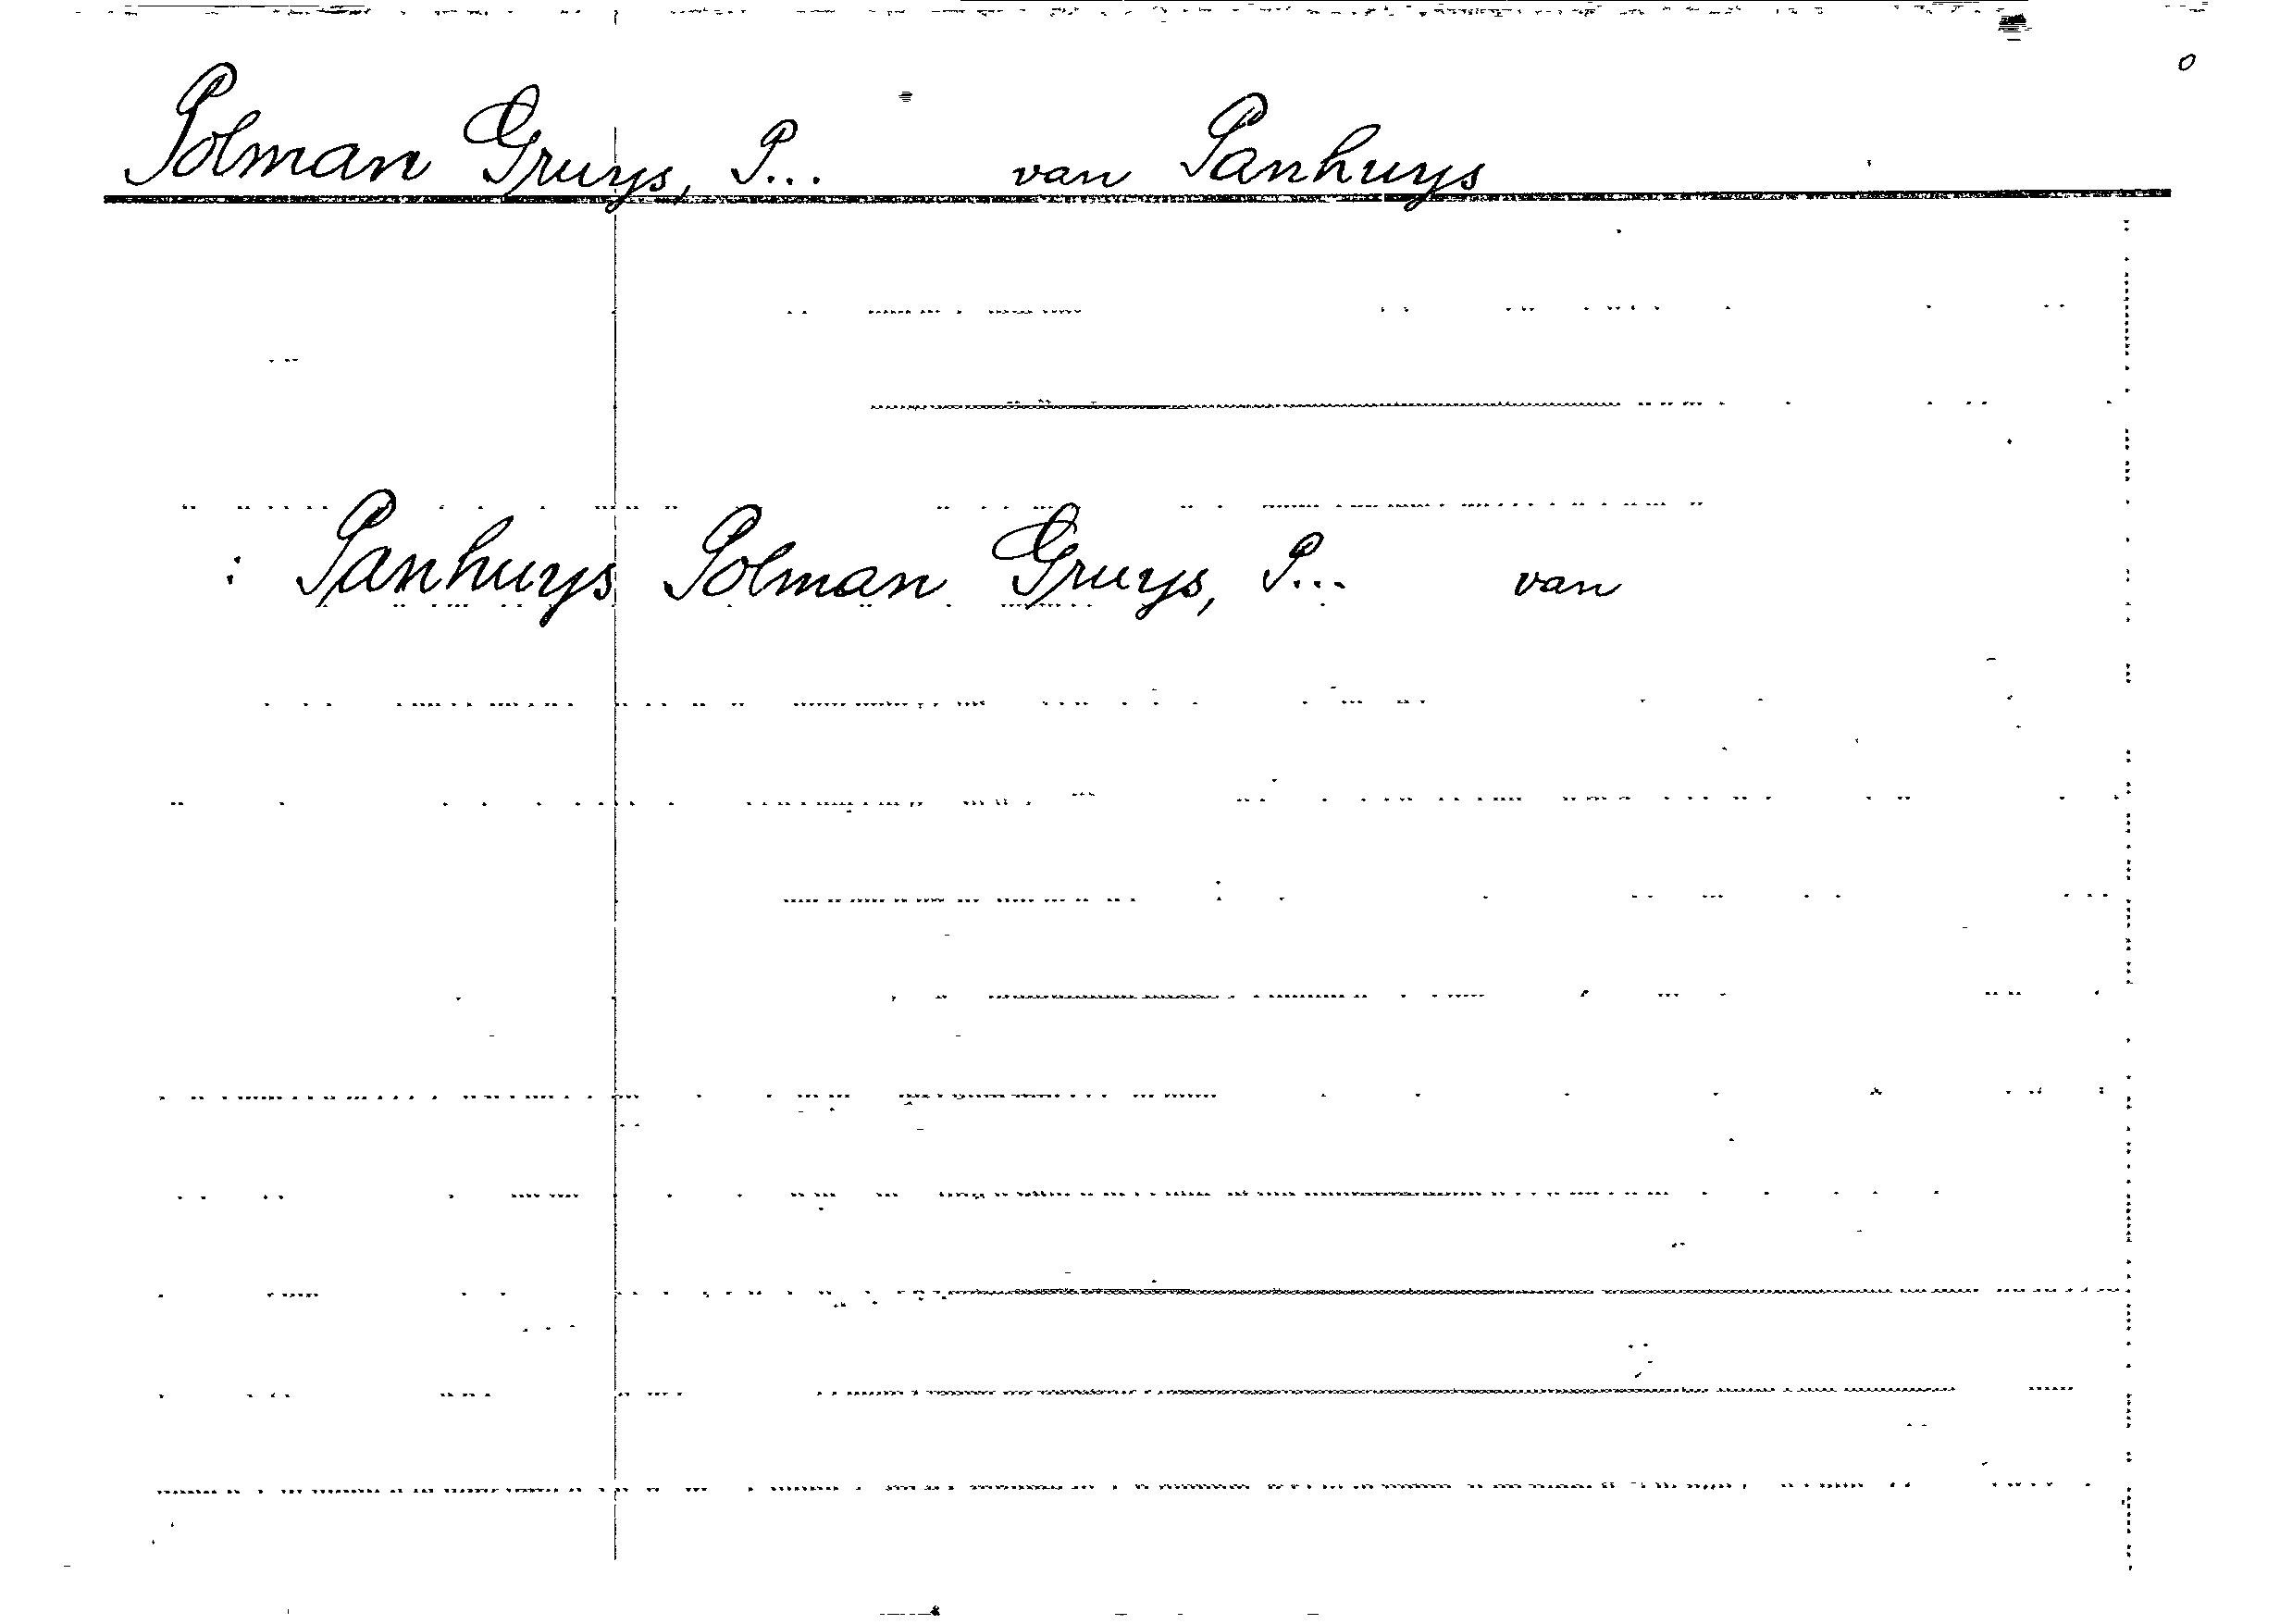 o
Polman Gruys, P... van Panhuys
: Panhuys Polman Gruys, P... van